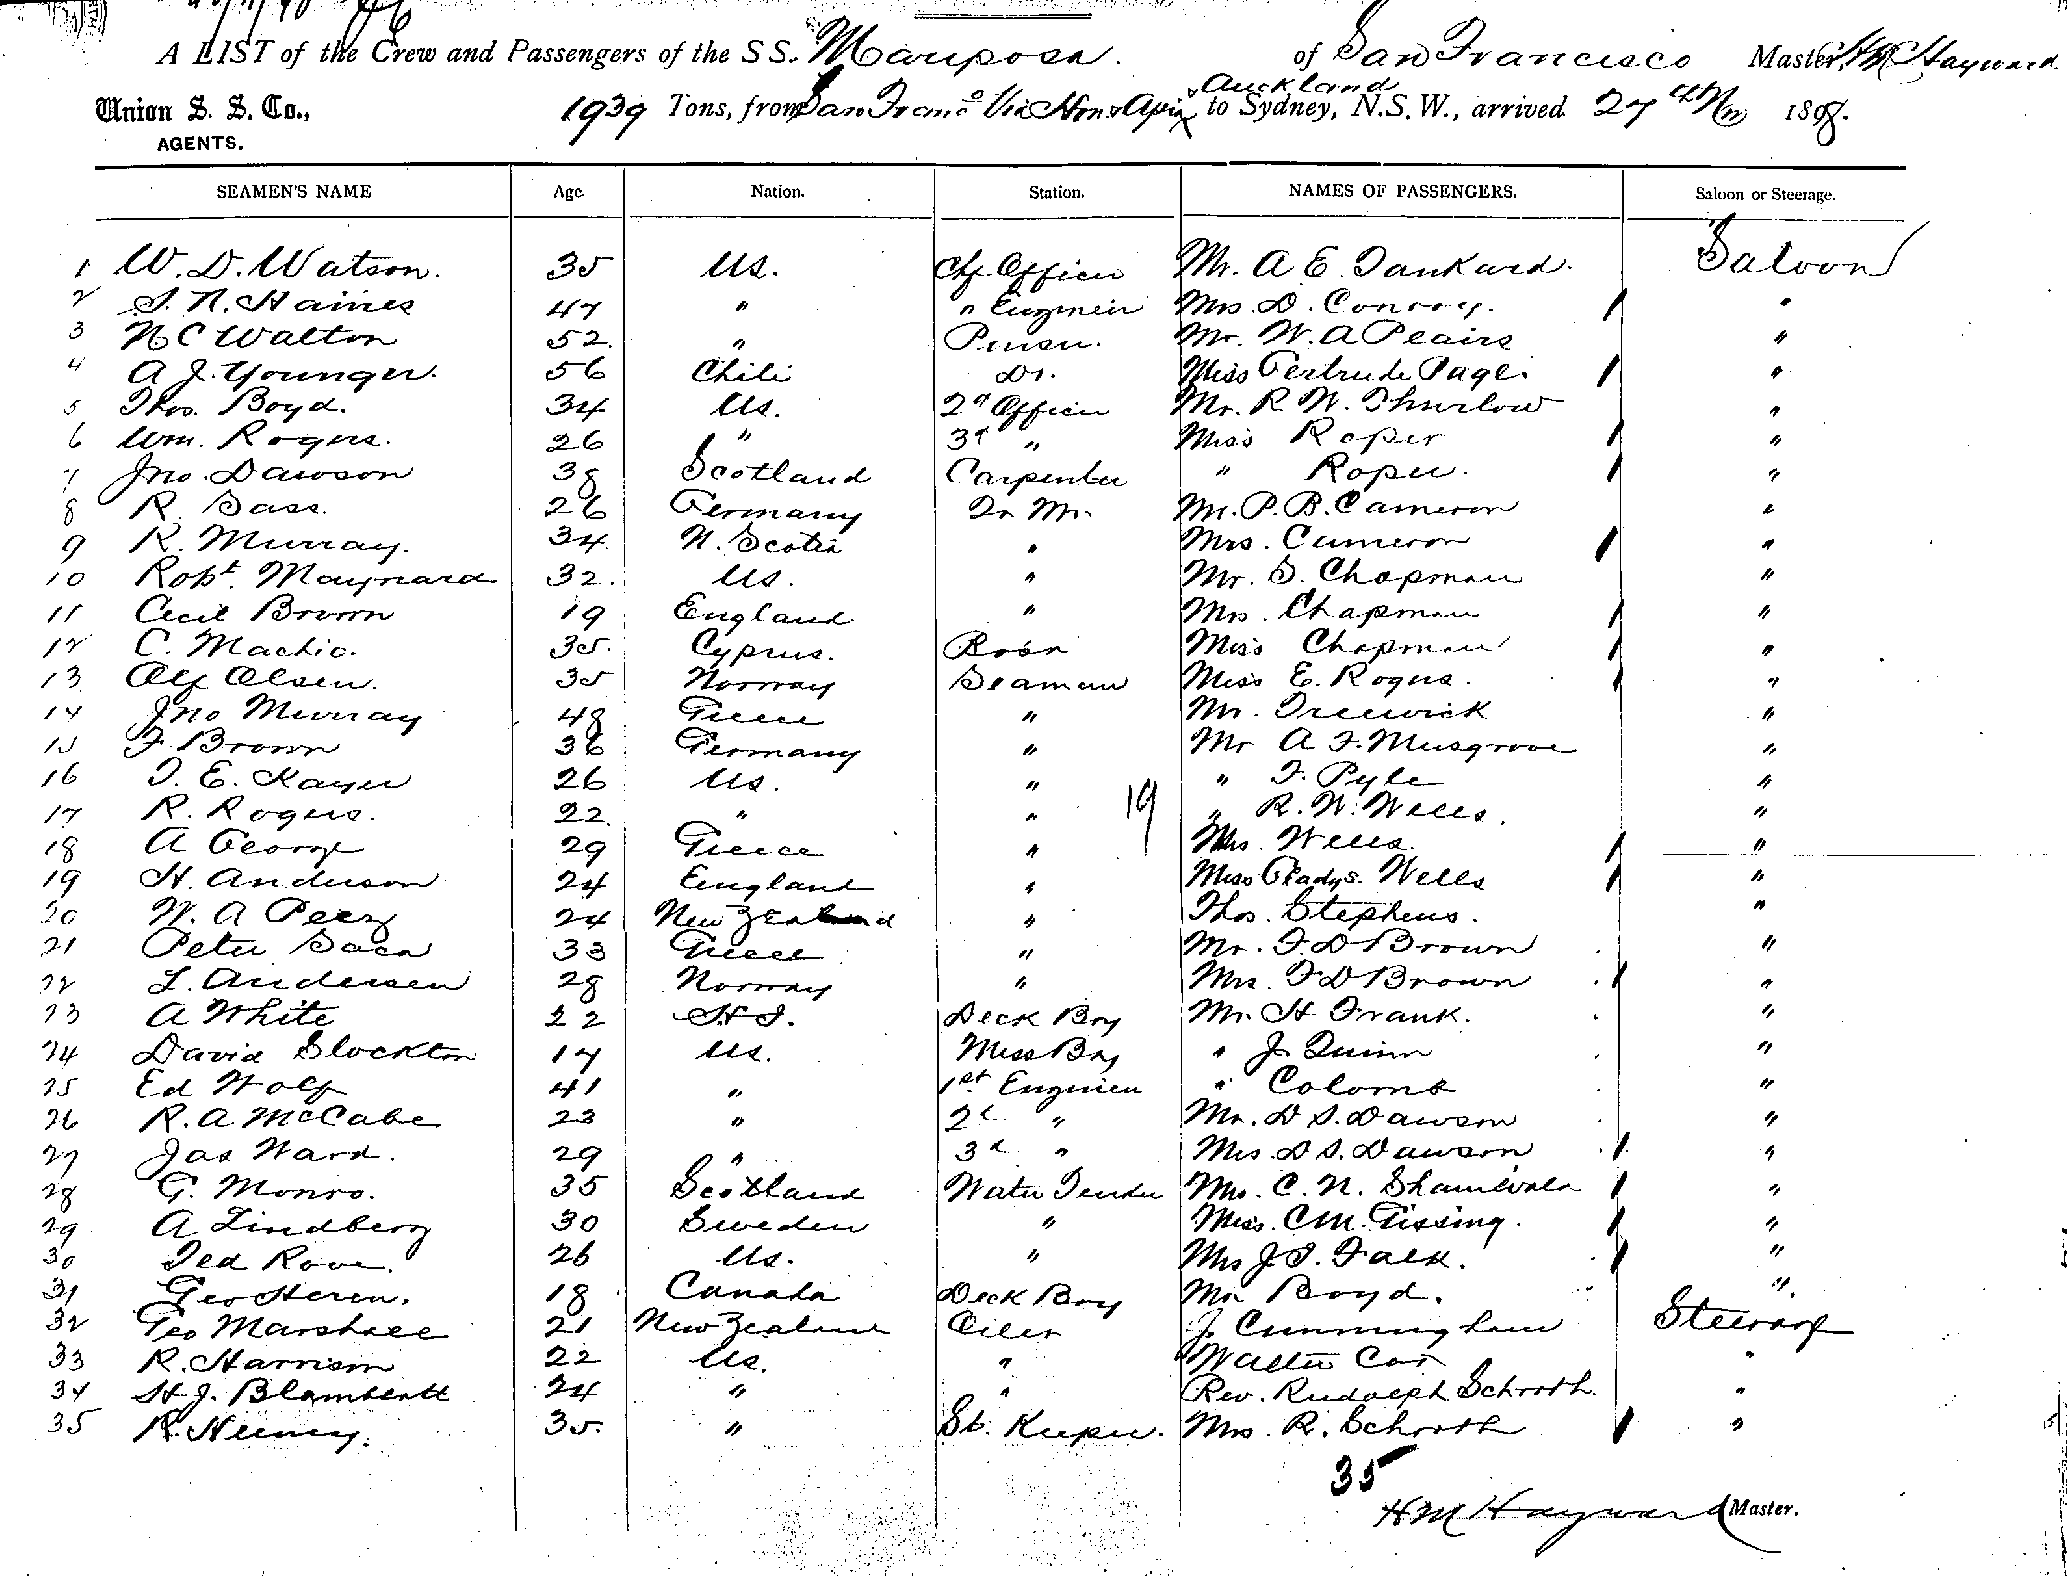 A LIST of the Crew and Passengers of the SS. Mariposa. of San Francisco Master, H M Hayward
Auckland
Union S. S. Co., 1939 Tons, from San Franco Via Hon & Apia & to Sydney, N.S.W., arrived 27th 1898.
AGENTS.
SEAMEN'S NAME Age. Nation. Station. NAMES OF PASSENGERS. Saloon or Steerage.
1 W. D. Watson. 35 US. Chf. Officer Mr. A E Tankard. Saloon
2 S. N. Haines 47 " " Engineer Mrs. D. Conroy. "
3 N C Walton 52. " Purser. Mr. W. A Peairs "
4 A J. Younger. 56 Chili Dr. Miss Gertrude Page. "
5 Thos. Boyd. 34 US. 2d Officer Mr. R. W. Thurlow "
6 Wm. Rogers. 26 " 3d " Miss Roper "
7 Jno. Dawson 38 Scotland Carpenter " Roper. "
8 R. Sass. 26 Germany Qr Mr. Mr. P. B. Cameron "
9 R. Murray. 34 N. Scotia " Mrs. Cameron "
10 Robt. Maynard 32. US. " Mr. S. Chapman "
11 Cecil Brown 19 England " Mrs. Chapman "
12 C. Machio. 35. Cyprus. Bosn Miss Chapman "
13 Alf Olsen. 35 Norway Seaman Miss E. Rogers. "
14 Jno Murray 48 Greece " Mr. Treewick "
15 F Brown 36 Germany " Mr A. F. Musgrove "
16 T. E. Kayer 26 US. " " F. Pyle "
17 R. Rogers. 22. " " 19 " R. W. Wells. "
18 A George 29 Greece " Mrs. Wells. "
19 H. Anderson 24 England " Miss Gladys. Wells "
20 W. A Peey 24 New Zealand " Thos. Stephens. "
21 Peter Saca 33 Greece " Mr. F. D Brown "
22 L. Andersen 28 Norway " Mrs. F D Brown "
23 A White 22 H I. Deck Boy Mr. H Frank. "
24 David Stockton 17 US. Mess Boy " J. Quinn "
25 Ed Wolf 41 " 1st Engineer " Colomb "
26 R. A. McCabe 23 " 2d " Mr. D S. Dawson "
27 Jas Ward. 29 " 3d " Mrs D S. Dawson "
28 G. Monro. 35 Scotland Water Tender Mrs. C. N. "
29 A Lindberg 30 Sweden " Miss. C M. Gissing. "
30 Ted Rove. 26 US. " Mrs J. S. Falk. "
31 Geo Heren. 18 Canada Deck Boy Mr Boyd. "
32 Geo Marshall 21 New Zealand Oiler J. Cunningham Steerage
33 R. Harrison 22 US. " Walter Cox "
34 H J. 24 " " Rev. Rudolph Schroth "
35 R. 35. " St. Keeper. Mrs. R. Schroth "
35
H M Hayward Master.